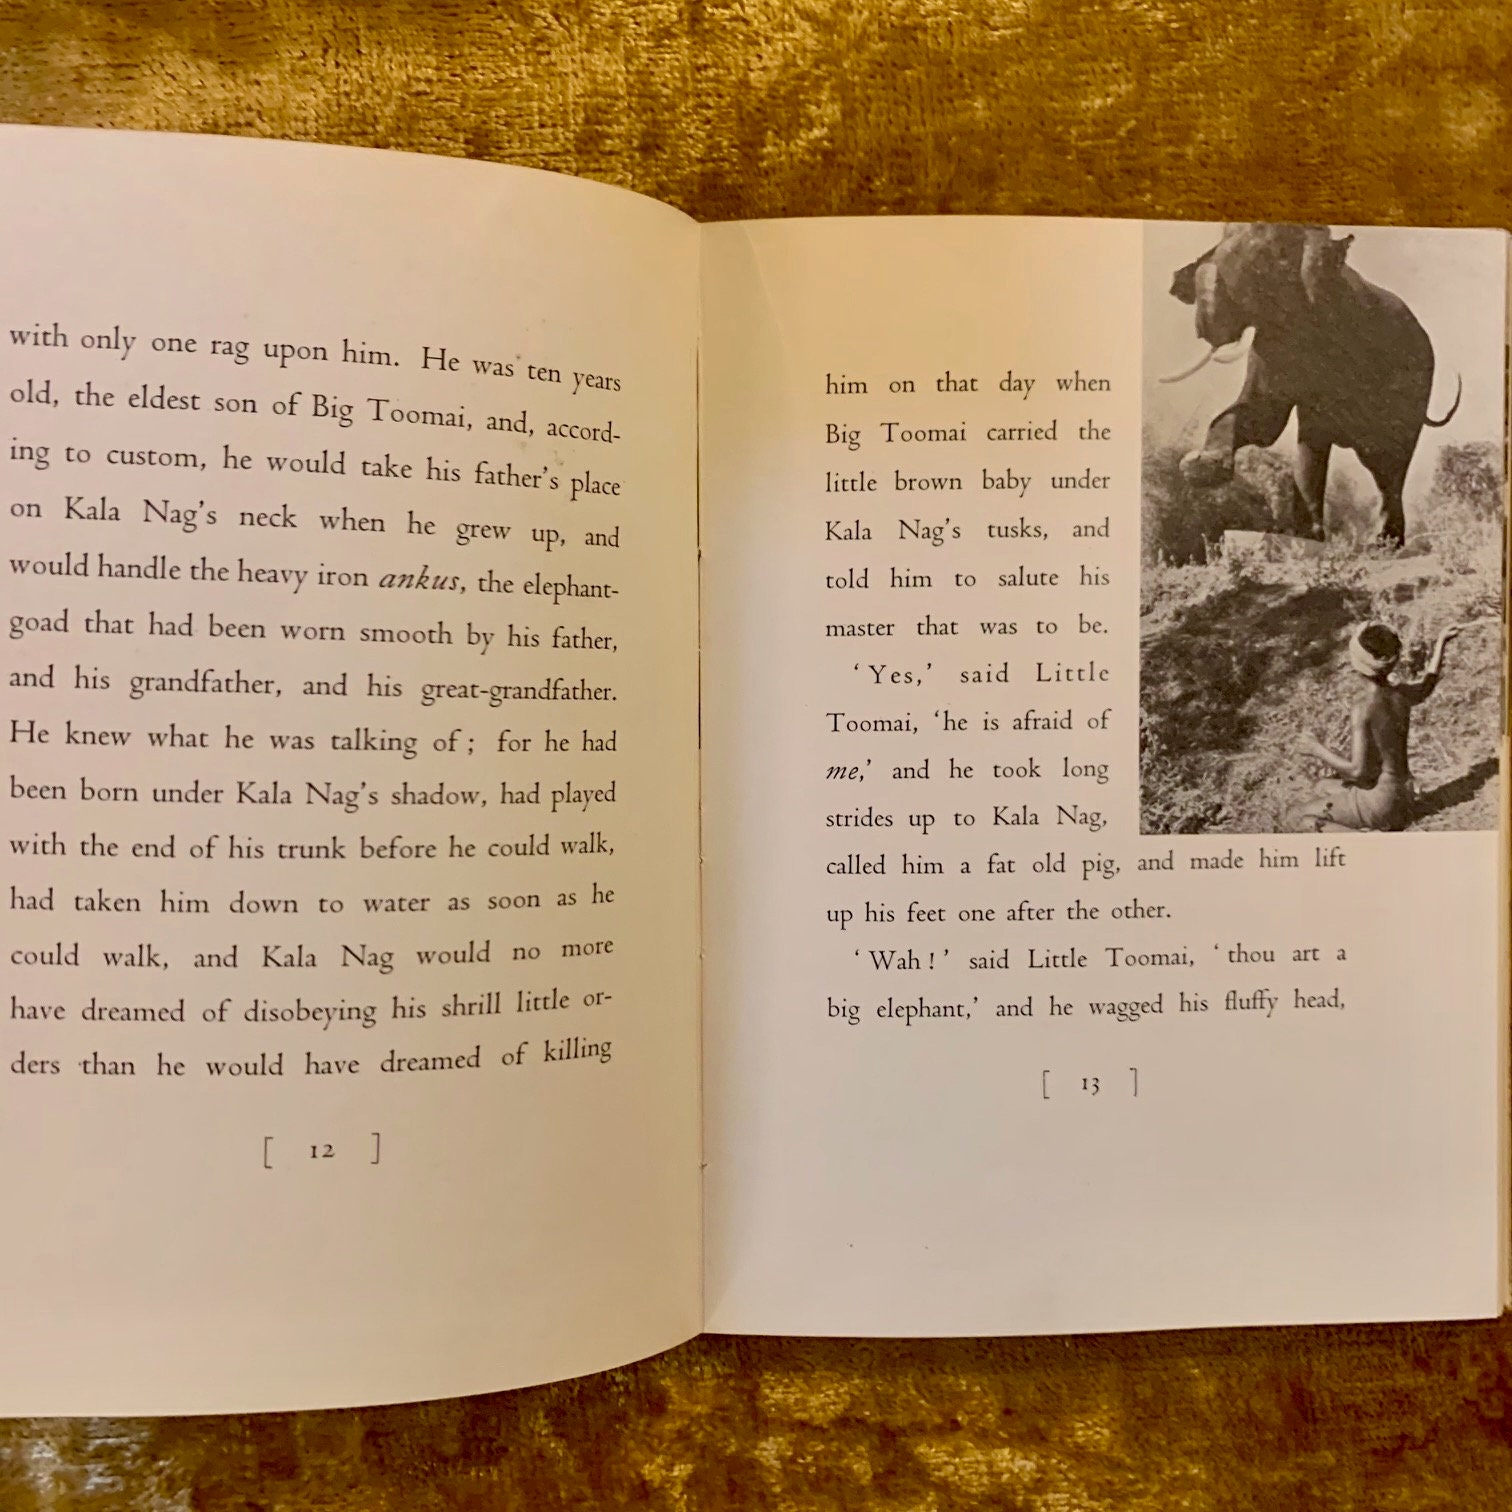 with only one rag upon him. He was ten years
old, the eldest son of Big Toomai, and, accord-
ing to custom, he would take his father's place
on Kala Nag's neck when he grew up, and
would handle the heavy iron ankus, the elephant-
goad that had been worn smooth by his father,
and his grandfather, and his great-grandfather.
He knew what he was talking of ; for he had
been born under Kala Nag's shadow, had played
with the end of his trunk before he could walk,
had taken him down to water as soon as he
could walk, and Kala Nag would no more
have dreamed of disobeying his shrill little or-
ders than he would have dreamed of killing
[ 12 ]
him on that day when
Big Toomai carried the
little brown baby under
Kala Nag's tusks, and
told him to salute his
master that was to be.
‘ Yes,’ said Little
Toomai, ‘he is afraid of
me,’ and he took long
strides up to Kala Nag,
called him a fat old pig, and made him lift
up his feet one after the other.
‘ Wah ! ’ said Little Toomai, ‘ thou art a
big elephant,’ and he wagged his fluffy head,
[ 13 ]